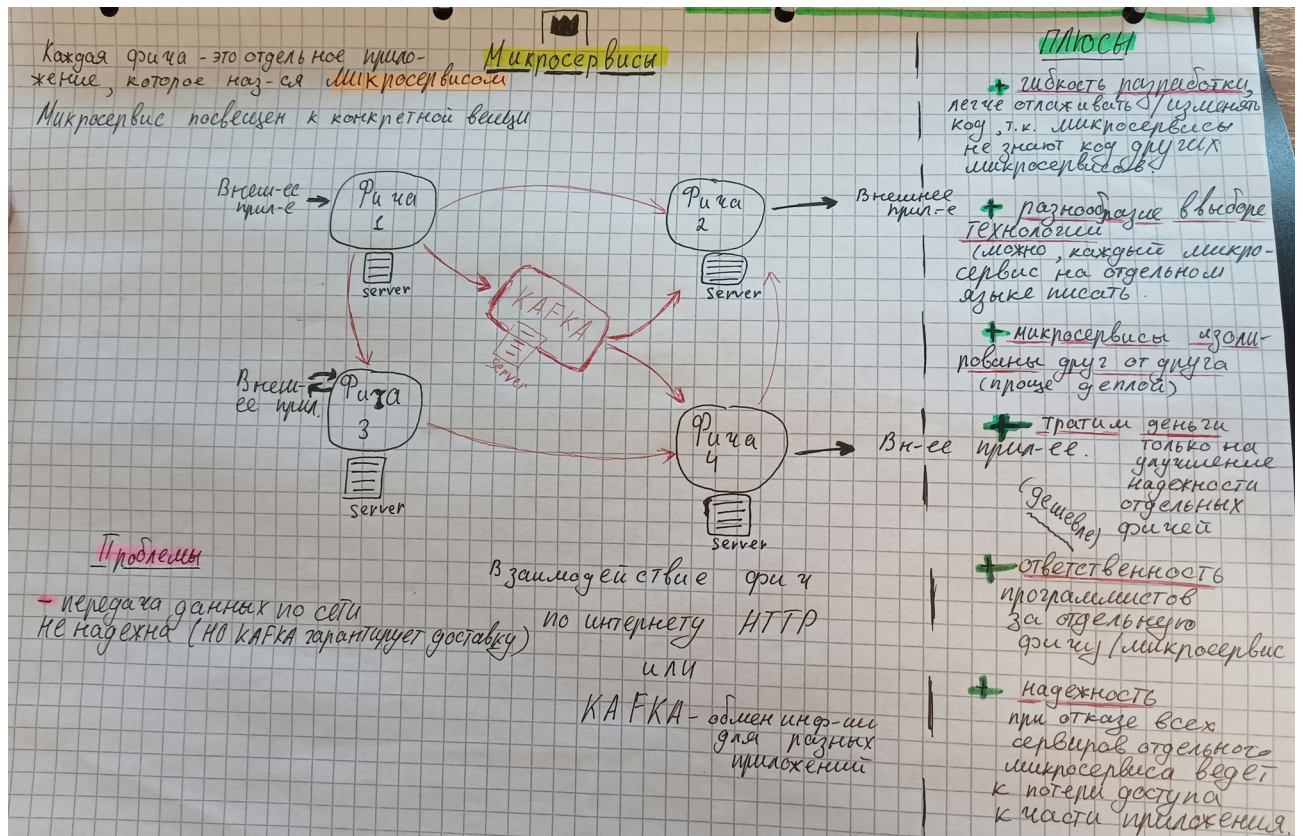 Микросервисы
Каждая фича - это отдельное прило-
жение, которое наз-ся микросервисом
Микросервис посвещен к конкретной вещи
Внеш-ее
прил-е
Фича
1
server
Фича
2
server
Внешнее
прил-е
KAFKA
server
Внеш-
ее прил.
Фича
3
server
Фича
4
server
Вн-ее прил-ее.
Проблемы
- передача данных по сети
не надежна (НО KAFKA гарантирует доставку)
Взаимодействие фич
по интернету HTTP
или
KAFKA - обмен инф-ии
для разных
приложений
ПЛЮСЫ
+ гибкость разработки,
легче отлаживать / изменять
код, т.к. микросервисы
не знают код других
микросервисов.
+ разнообразие в выборе
технологий
(можно, каждый микро-
сервис на отдельном
языке писать.
+ микросервисы изоли-
рованы друг от друга
(проще деплой)
+ тратим деньги
только на
улучшение
надежности
отдельных
фичей
(дешевле)
+ ответственность
программистов
за отдельную
фичу/микросервис
+ надежность
при отказе всех
сервиров отдельного
микросервиса ведет
к потери доступа
к части приложения.